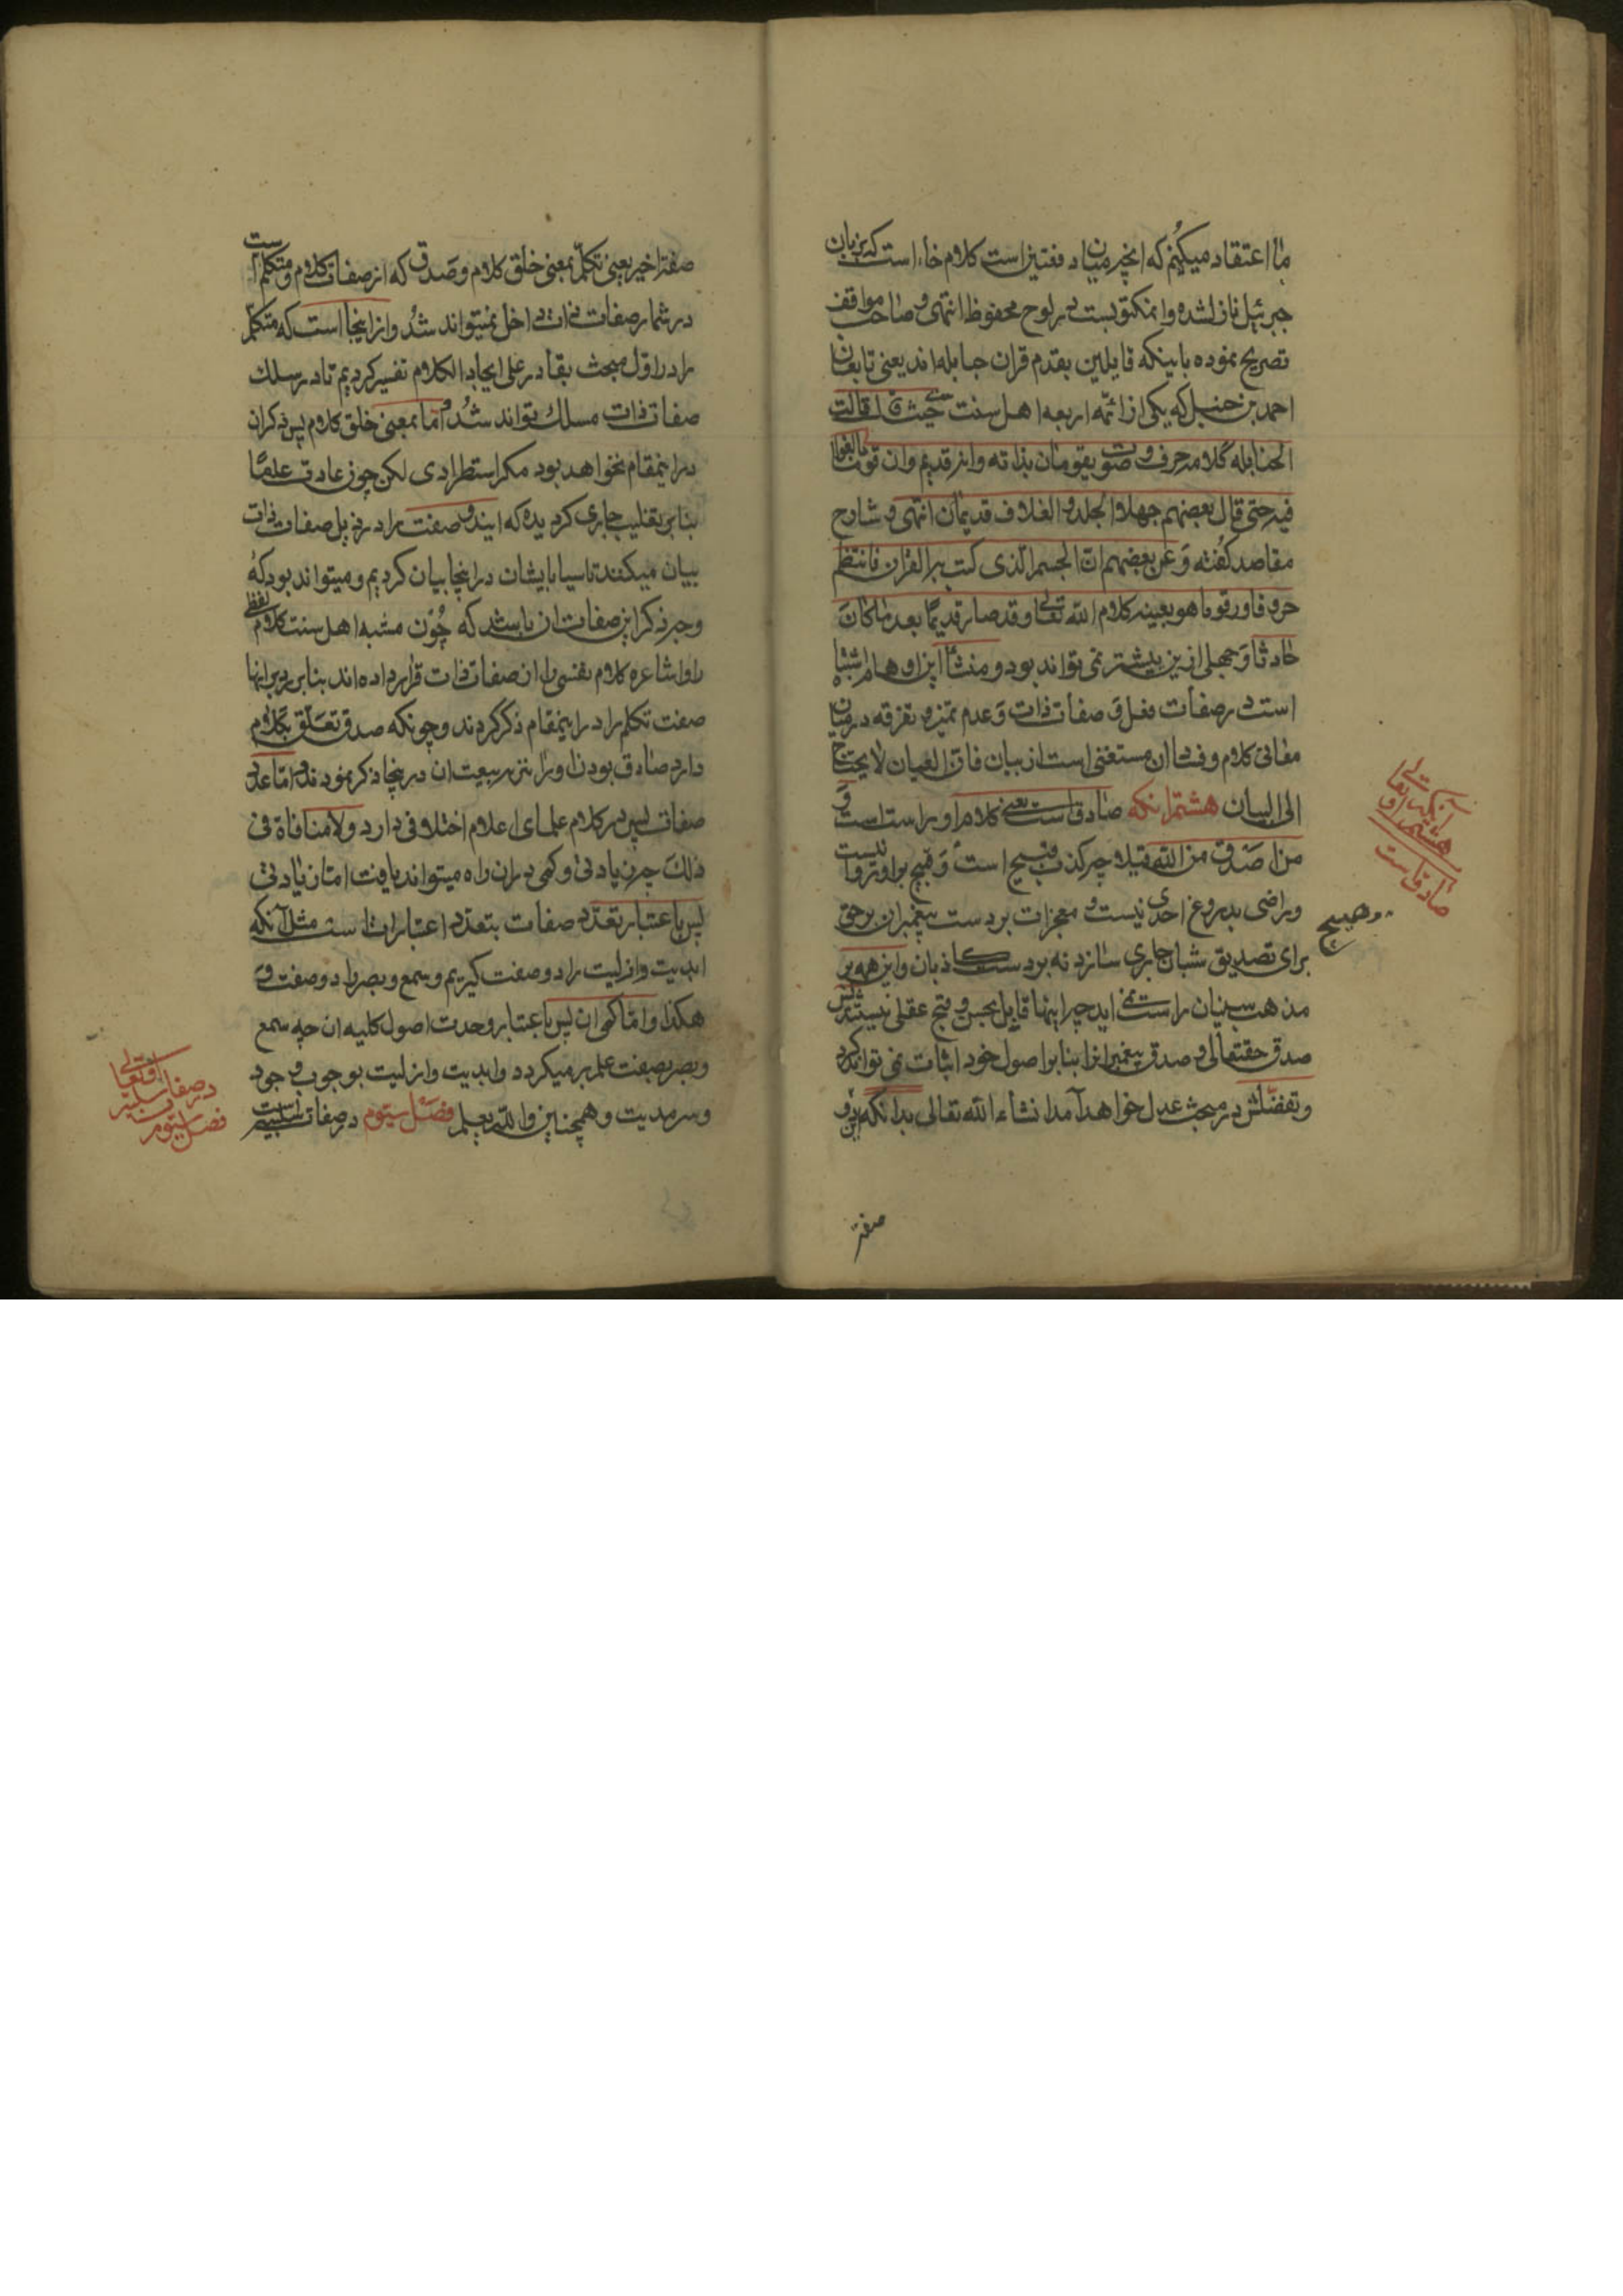 ما اعتقاد میکنیم که انچه میان دفتین است کلام خدا است که بزبان
جبرئیل نازل شده و انمکتوبست در لوح محفوظ انتهی و صاحب مواقف
تصریح نموده باینکه قایلین بقدم قران حنابله اند یعنی تابعان
احمد بن حنبل که یکی از ائمه اربعه اهل سنت حیث قال قالت
الحنابله کلامه حرف و صوت یقومان بذاته و انه قدیم وان قوما بالغوا
فیه حتی قال بعضهم جهلا الجلد و الغلاف قدیمان انتهی و شارح
مقاصد گفته و عن بعضهم ان الجسم الذی کتب به القران فانتظم
حروفا و رقوما هو بعینه کلام الله تعالی و قد صار قدیما بعد ما کان
حادثا و جهلی ازین بیشتر نمی تواند بود و منشأ این اوهام اشتباه
است در صفات فعل و صفات ذات و عدم تمیز و تفرقه در میان
معانی کلام و فساد ان مستغنی است از بیان فان العیان لا یحتاج
الی البیان هشتم انکه صادق است یعنی کلام او راست است و
من اصدق من الله قیلا چه کذب قبیح است و قبیح بر او روا نیست
و راضی بدروغ احدی نیست و معجزات بر دست پیغمبران بر حق
برای تصدیق شان جاری سازد نه بر دست کاذبان و این همه بر
مذهب سنیان راست نمی اید چرا اینها قایل بحسن و قبح عقلی نیستند پس
صدق حقتعالی و صدق پیغمبرانرا بنا بر اصول خود اثبات نمی توانند کرد
و تفصیلش در مبحث عدل خواهد آمد انشاء الله تعالی بدانکه این دو
صفة
هشتم آنکه او تعالی
صادق است
و هیچ
صفة اخیر یعنی تکلم بمعنی خلق کلام و صدق که از صفات کلام و متکلم است
در شمار صفات ذات داخل نمیتواند شد و از اینجا است که متکلم
را در اول مبحث بقادر علی ایجاد الکلام تفسیر کردیم تا در سلک
صفات ذات مسلک تواند شد و اما بمعنی خلق کلام پس ذکر ان
در اینمقام نخواهد بود مگر استطرادی لکن چون عادت علما
بنابر تغلیب جاری گردیده که ایندو صفت را در ذیل صفات ذات
بیان میکنند تاسیا بایشان در اینجا بیان کردیم و میتواند بود که
وجه ذکر این صفات ان باشد که چون مشبه اهل سنت کلام لفظی
را و اشاعره کلام نفسی را از صفات ذات قرار داده اند بنابر رد بر انها
صفت تکلم را در اینمقام ذکر کردند و چونکه صدق تعلق بکلام
دارد صادق بودن او را نیز به تبعیت ان در ینجا ذکر نمودند و اما عدد
صفات پس در کلام علمای اعلام اختلافی دارد و لا منافاة فی
ذلک چه زیادتی و کمی در ان راه میتواند یافت اما زیادتی
پس باعتبار تعدد صفات بتعدد اعتبارات است مثل آنکه
ابدیت و ازلیت را دو صفت گیریم و سمع و بصر را دو صفت و
هکذا و اما کمی ان پس باعتبار وحدت اصول کلیه ان چه سمع
و بصر بصفت علم بر میگردد و ابدیت و ازلیت بوجوب وجود
و سرمدیت و همچنین والله یعلم فصل سیوم در صفات سلبیه است
فصل سیوم
در صفات سلبیه
او تعالی